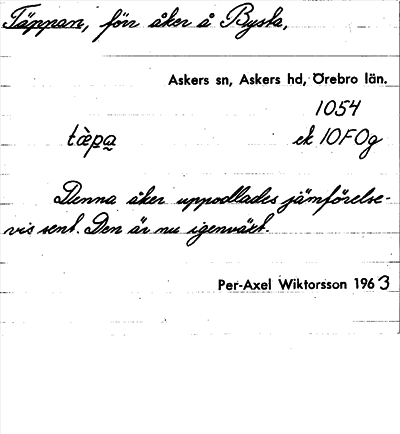 Täppan, förr åker å Bysta,
Askers sn, Askers hd, Örebro län.
1054
tȁpa̰ ek 10F0g
Denna åker uppodlades jämförelse-
vis sent. Den är nu igenväxt.
Per-Axel Wiktorsson 1963